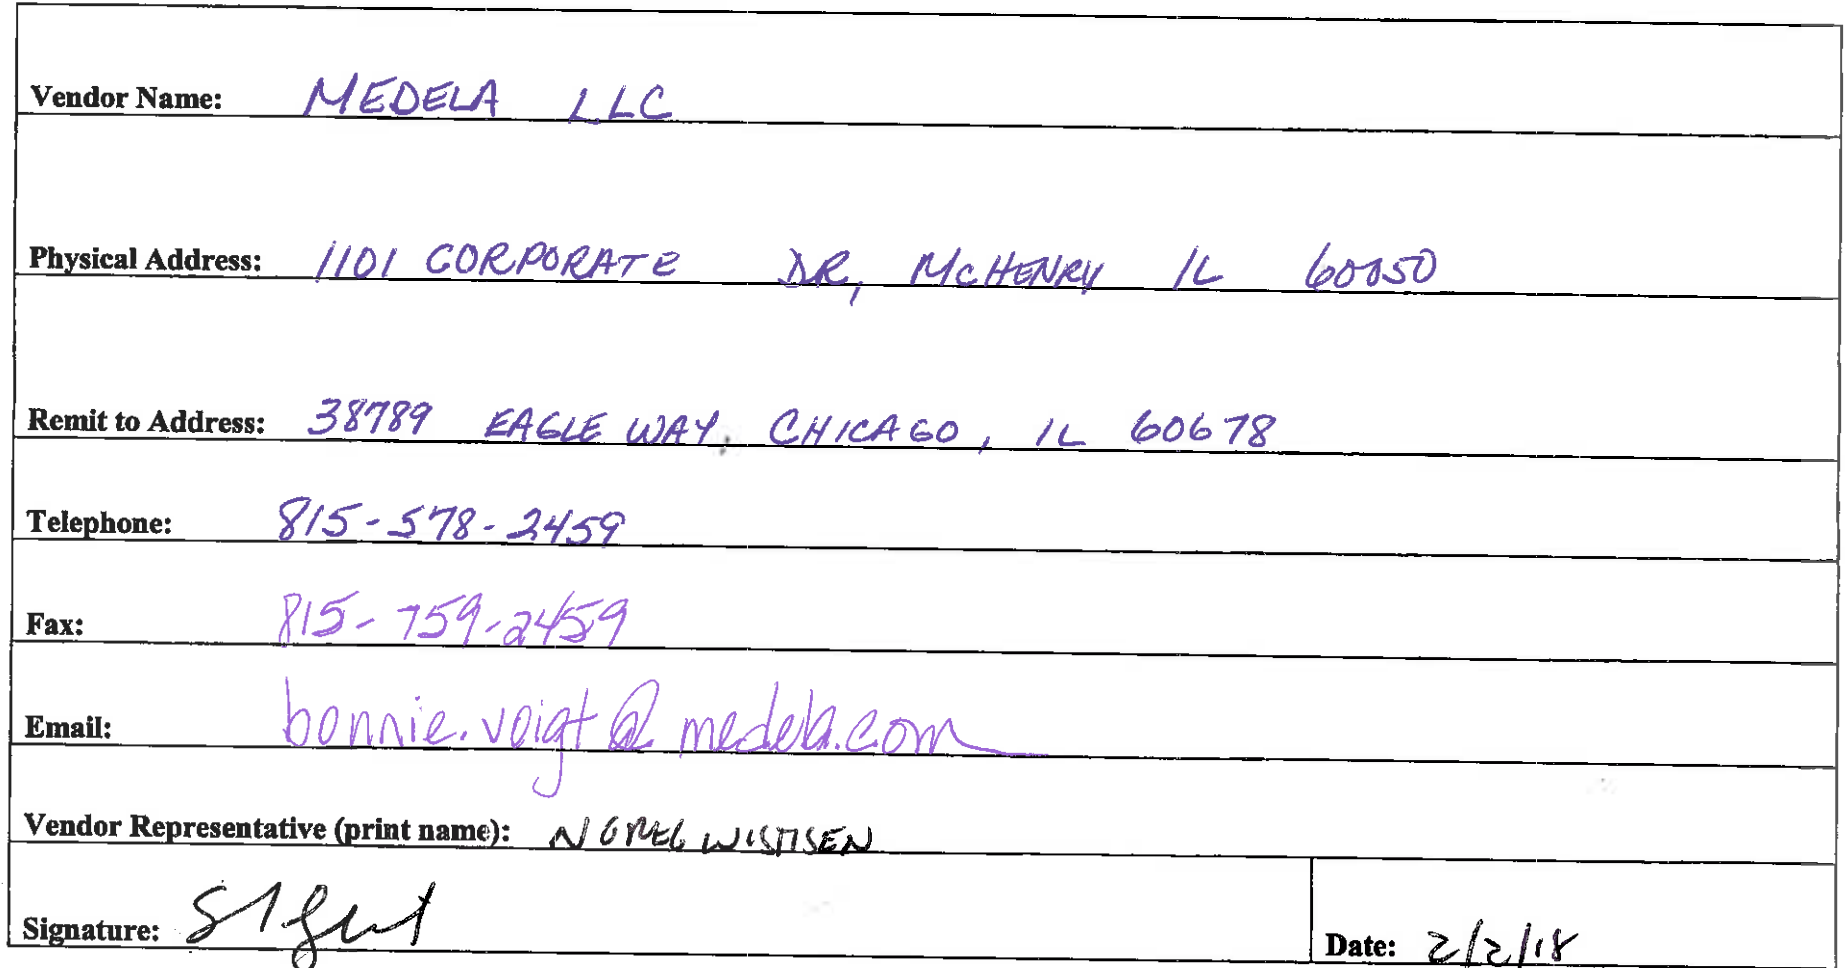 Vendor Name: MEDELA LLC
Physical Address: 1101 CORPORATE DR, MCHENRY IL 60050
Remit to Address: 38789 EAGLE WAY, CHICAGO, IL 60678
Telephone: 815-578-2459
Fax: 815-759-2459
Email: bonnie.voigt@medela.com
Vendor Representative (print name): N GREG WISTISEN
Signature:
Date: 2/2/18